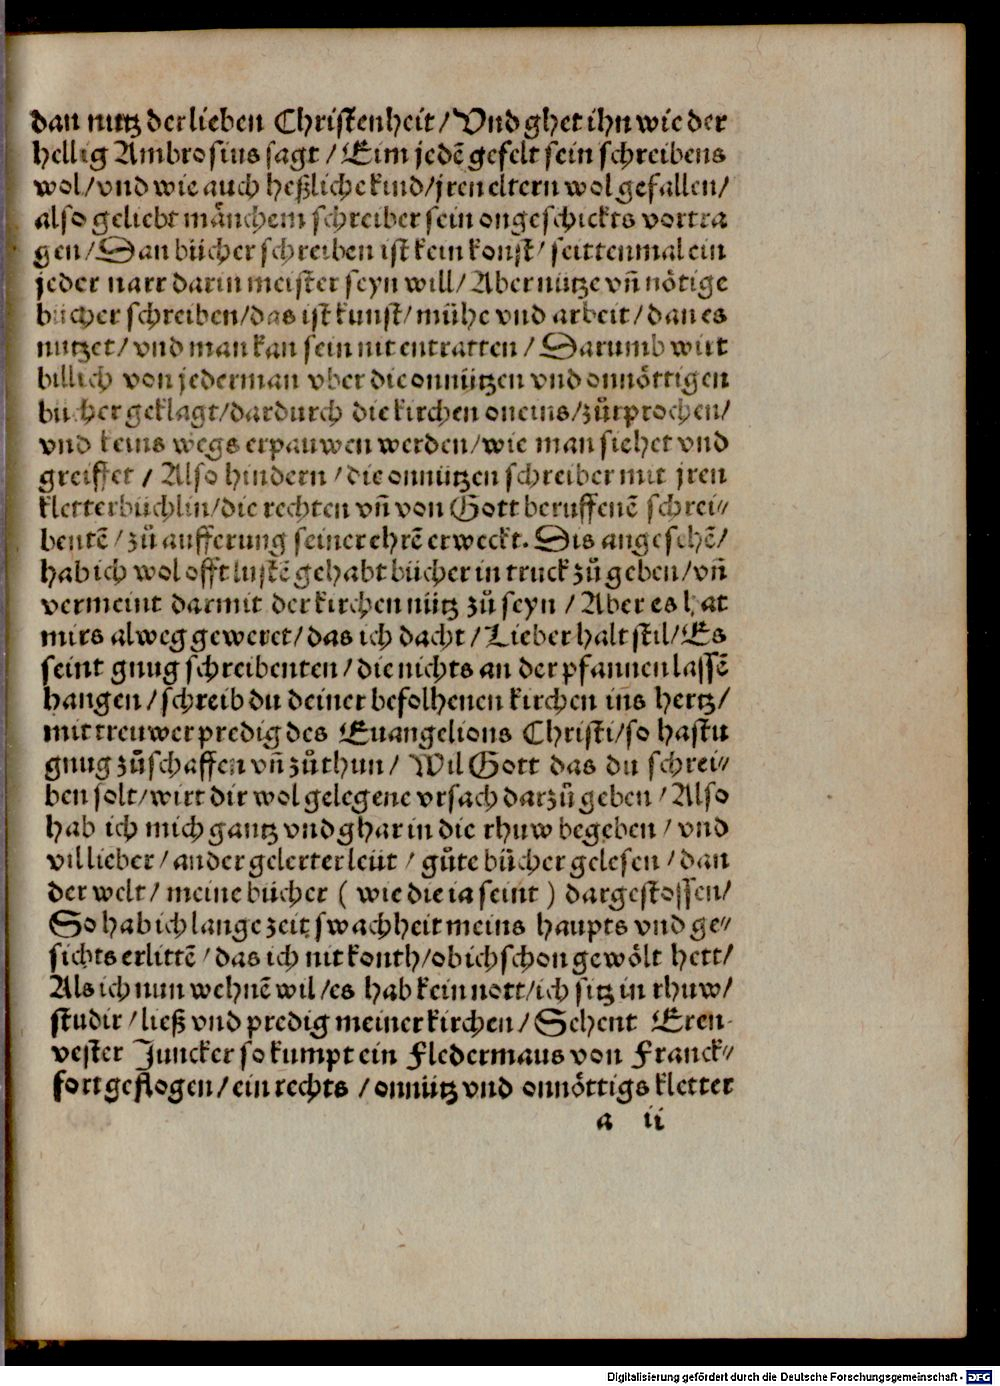 dan nutz der lieben Christenheit / Vnd ghet ihn wie der
hellig Ambrosius sagt / Eim jedẽ gefelt sein schreibens
wol / vnd wie auch heßliche kind / jren eltern wol gefallen /
also geliebt mänchem schreiber sein ongeschickts vortra
gen / Dan bücher schreiben ist kein konst / seittenmal ein
jeder narr darin meister seyn will / Aber nütze vñ nötige
bücher schreiben / das ist kunst / mühe vnd arbeit / dan es
nutzet / vnd man kan sein nit entratten / Darumb wirt
billich von jederman vber die onnützen vnd onnöttigen
bücher geklagt / dardurch die kirchen oneins / zůrprochen /
vnd keins wegs erpauwen werden / wie man siehet vnd
greiffet / Also hindern / die onnützen schreiber mit jren
kletterbüchlin / die rechten vñ von Gott beruffenẽ schrei⸗
bentẽ / zů aufferung seiner ehrẽ erweckt. Dis angesehẽ /
hab ich wol offt lustẽ gehabt bücher in truck zů geben / vñ
vermeint darmit der kirchen nütz zů seyn / Aber es hat
mirs alweg geweret / das ich dacht / Lieber halt stil / Es
seint gnug schreibenten / die nichts an der pfannen lassẽ
hangen / schreib du deiner befolhenen kirchen iñs hertz /
mit treuwer predig des Euangelions Christi / so hastu
gnug zůschaffen vñ zůthun / Wil Gott das du schrei⸗
ben solt / wirt dir wol gelegene vrsach darzů geben / Also
hab ich mich gantz vnd ghar in die rhuw begeben / vnd
vil lieber / ander gelerter leüt / gůte bücher gelesen / dan
der welt / meine bücher ( wie die ia seint ) dargestossen /
So hab ich lange zeit swachheit meins haupts vnd ge⸗
sichts erlittẽ / das ich nit konth / ob ich schon gewölt hett /
Als ich nun wehnẽ wil / es hab kein nott / ich sitz in rhuw /
studir / ließ vnd predig meiner kirchen / Sehent Eren⸗
vester Juncker so kumpt ein Fledermaus von Franck⸗
fort geflogen / ein rechts / onnütz vnd onnöttigs kletter
a ii
Digitalisierung gefördert durch die Deutsche Forschungsgemeinschaft - DFG